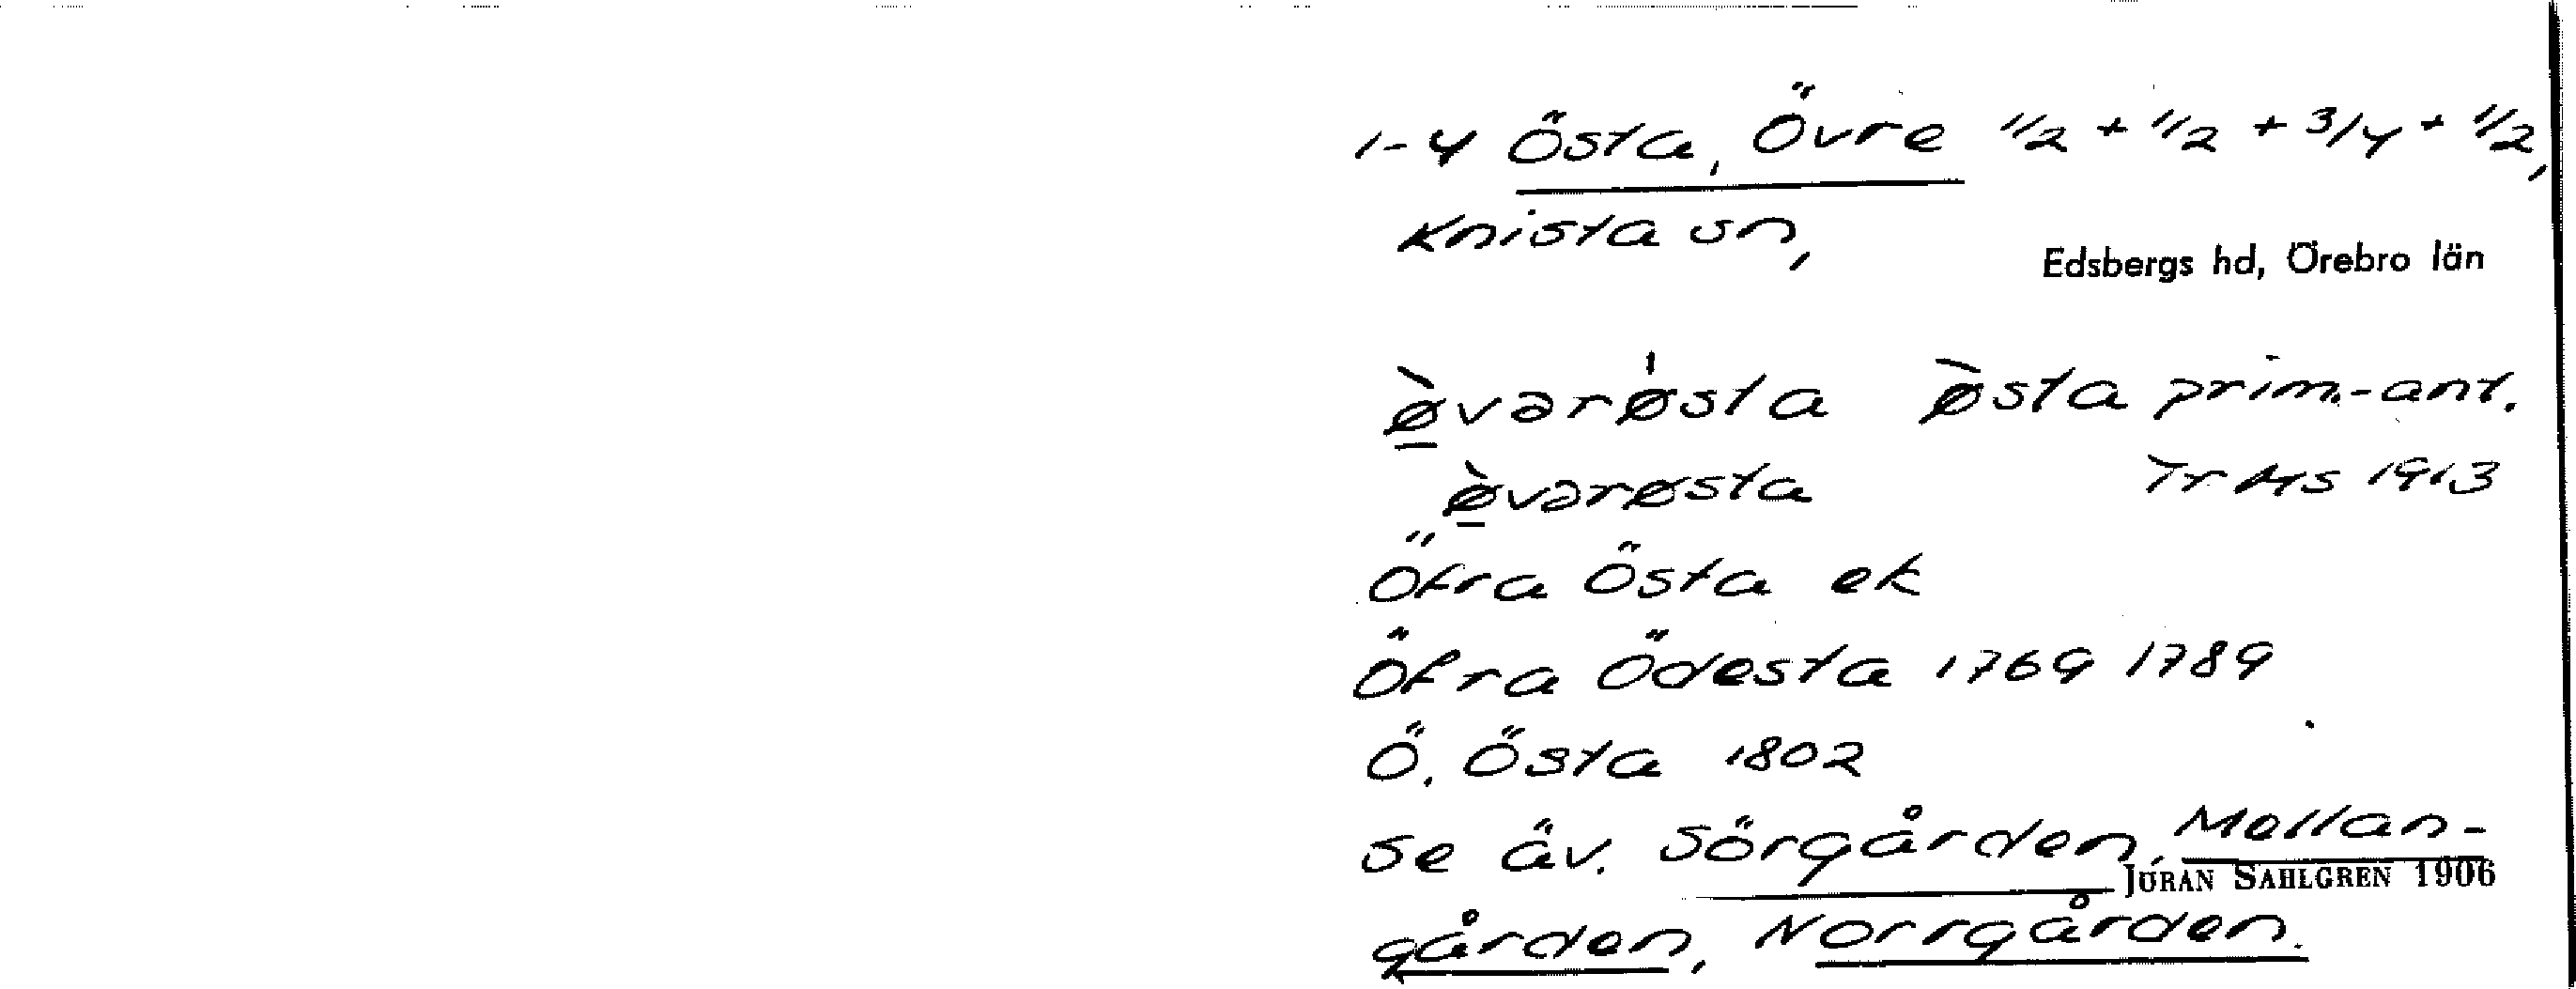 1-4 Östa, Övre 1/2 + 1/2 + 3/4 + 1/2,
Knista sn,
Edsbergs hd, Örebro län
ø̲̀vərø̍sta ø̀sta prim.-ant.
ø̲̀vərøsta Tr Ms 1913
Öfra Östa ek
Öfra Ödesta 1769 1789
Ö. Östa 1802
se äv. Sörgården, Mellan-
JÖRAN SAHLGREN 1906
gården, Norrgården.